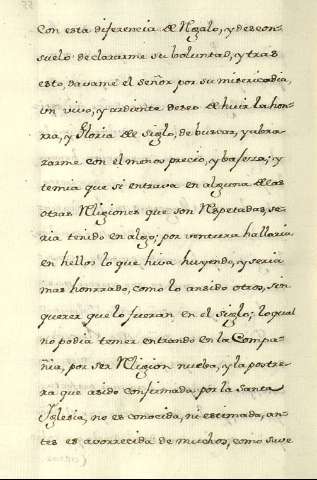 con esta diferencia de Regalo, y descon-
suelo declararme su boluntad, y tras
esto, davame el señor por su misericordia,
un vivo, y ardiente deseo de huir la hon-
rra, y Gloria del siglo, de buscar, y abra-
zarme con el menos precio, y bajeza; y
temia que si entrava en alguna de las
otras Religiones que son Respetadas, se-
ria tenido en algo; por ventura hallaria
en hellos lo que hiva huyendo, y seria
mas honrrado, como lo an sido otros, sin
querer que lo fueran en el siglo; lo qual
no podia temer entrando en la Compa-
ñia, por ser Religion nueba, y la postre-
ra que a sido confirmada por la Santa
Iglesia, no es conocida, ni estimada, an-
tes es avorrecida de muchos, como suve